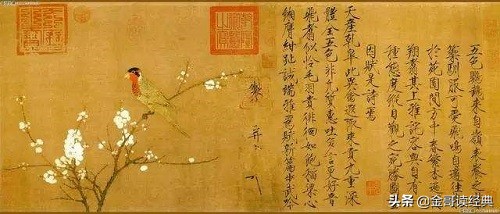 五色鸚鵡來自嶺表養之禁
籞馴服可愛飛鳴自適往來
於苑囿間方中春繁杏遍開
翔翥其上雅詫容與自有一
種態度縱目觀之宛勝圖
因賦是詩焉
天產乾皋此異禽遐陬來貢九重深
體全五色非凡質惠吐多言更好音
飛翥似憐毛羽貴徘徊如飽稻粱心
緗膺紺趾誠端雅為賦新篇步武吟
头条 @金哥读经典